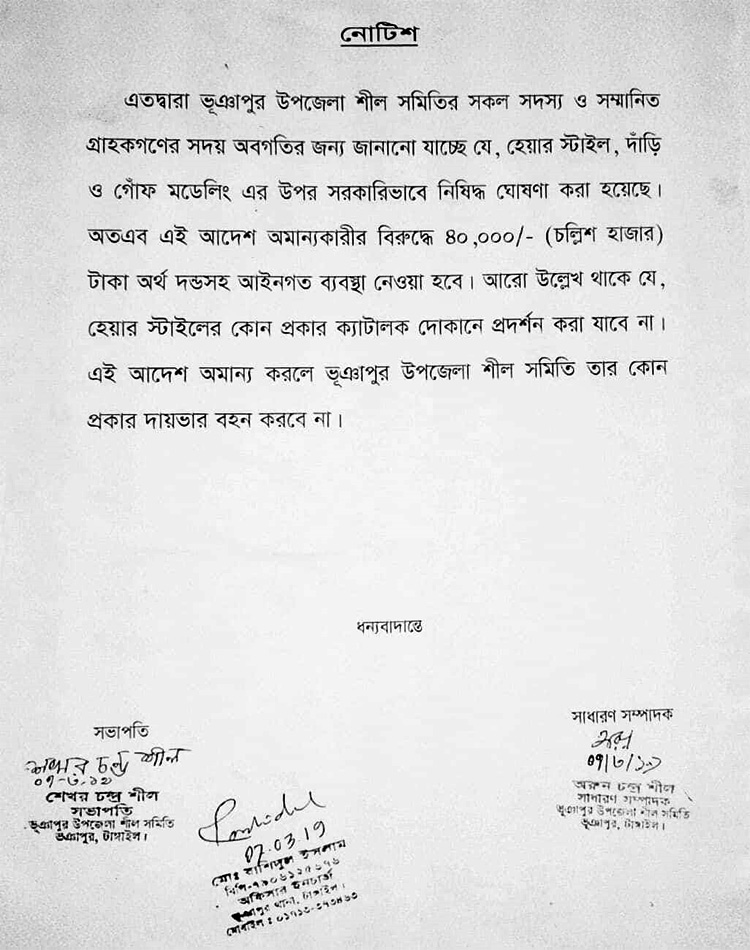 নোটিশ
এতদ্বারা ভূঞাপুর উপজেলা শীল সমিতির সকল সদস্য ও সম্মানিত
গ্রাহকগণের সদয় অবগতির জন্য জানানো যাচ্ছে যে, হেয়ার স্টাইল, দাঁড়ি
ও গোঁফ মডেলিং এর উপর সরকারিভাবে নিষিদ্ধ ঘোষণা করা হয়েছে।
অতএব এই আদেশ অমান্যকারীর বিরুদ্ধে ৪০,০০০/- (চল্লিশ হাজার)
টাকা অর্থ দন্ডসহ আইনগত ব্যবস্থা নেওয়া হবে। আরো উল্লেখ থাকে যে,
হেয়ার স্টাইলের কোন প্রকার ক্যাটালক দোকানে প্রদর্শন করা যাবে না।
এই আদেশ অমান্য করলে ভূঞাপুর উপজেলা শীল সমিতি তার কোন
প্রকার দায়ভার বহন করবে না।
ধন্যবাদান্তে
সভাপতি
শেখর চন্দ্র শীল
০৭-৩-১৯
শেখর চন্দ্র শীল
সভাপতি
ভূঞাপুর উপজেলা শীল সমিতি
ভূঞাপুর, টাঙ্গাইল।
সাধারণ সম্পাদক
০৭/৩/১৯
অরুন চন্দ্র শীল
সাধারণ সম্পাদক
ভূঞাপুর উপজেলা শীল সমিতি
ভূঞাপুর, টাঙ্গাইল।
07.03.19
মোঃ রাশিদুল ইসলাম
অফিসার ইনচার্জ
ভূঞাপুর থানা, টাঙ্গাইল।